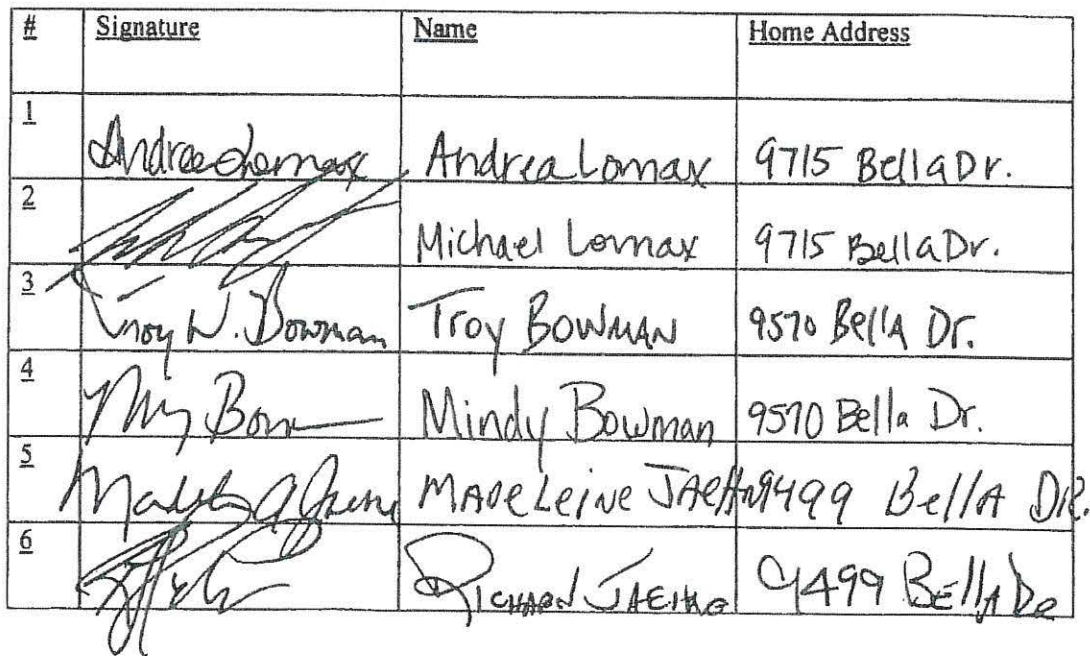 # Signature Name Home Address
1 Andrea Lomax Andrea Lomax 9715 Bella Dr.
2 Michael Lomax 9715 Bella Dr.
3 Troy N. Bowman Troy BOWMAN 9570 BellA Dr.
4 Mindy Bowman 9570 Bella Dr.
5 MADeLeiNe 9499 BellA DR.
6 RICHARD 9499 BEllA DR